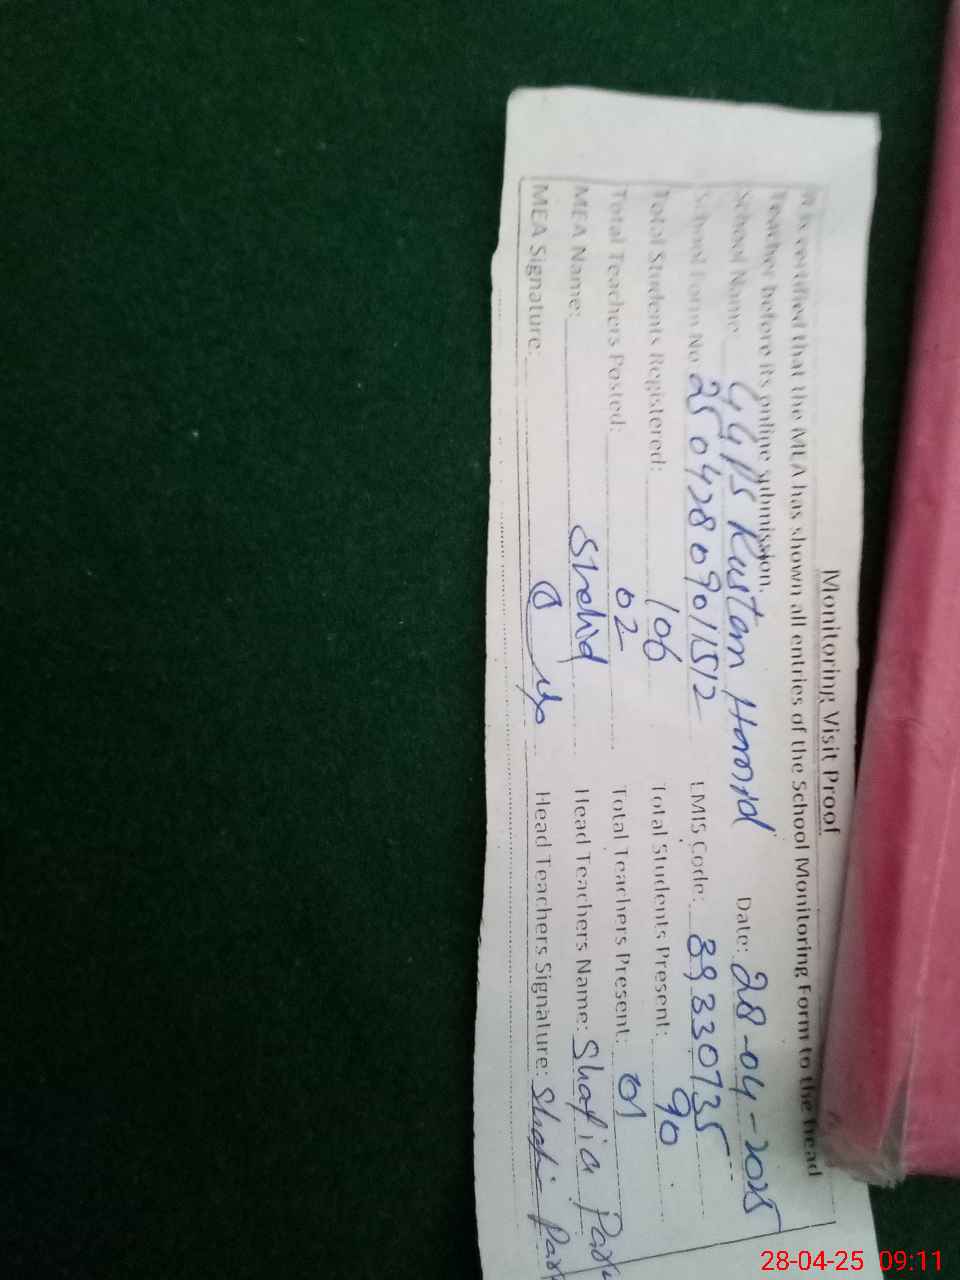 Monitoring Visit Proof
It is certified that the MEA has shown all entries of the School Monitoring Form to the head
Teacher before its online submission.
School Name GGPS Rustam Hamid Date: 28-04-2025
School Form No 25042809011512 EMIS Code: 39330735
Total Students Registered: 106 Total Students Present: 90
Total Teachers Posted: 02 Total Teachers Present: 01
MEA Name: Shahid Head Teachers Name: Shafia
MEA Signature: Head Teachers Signature:
28-04-25 09:11